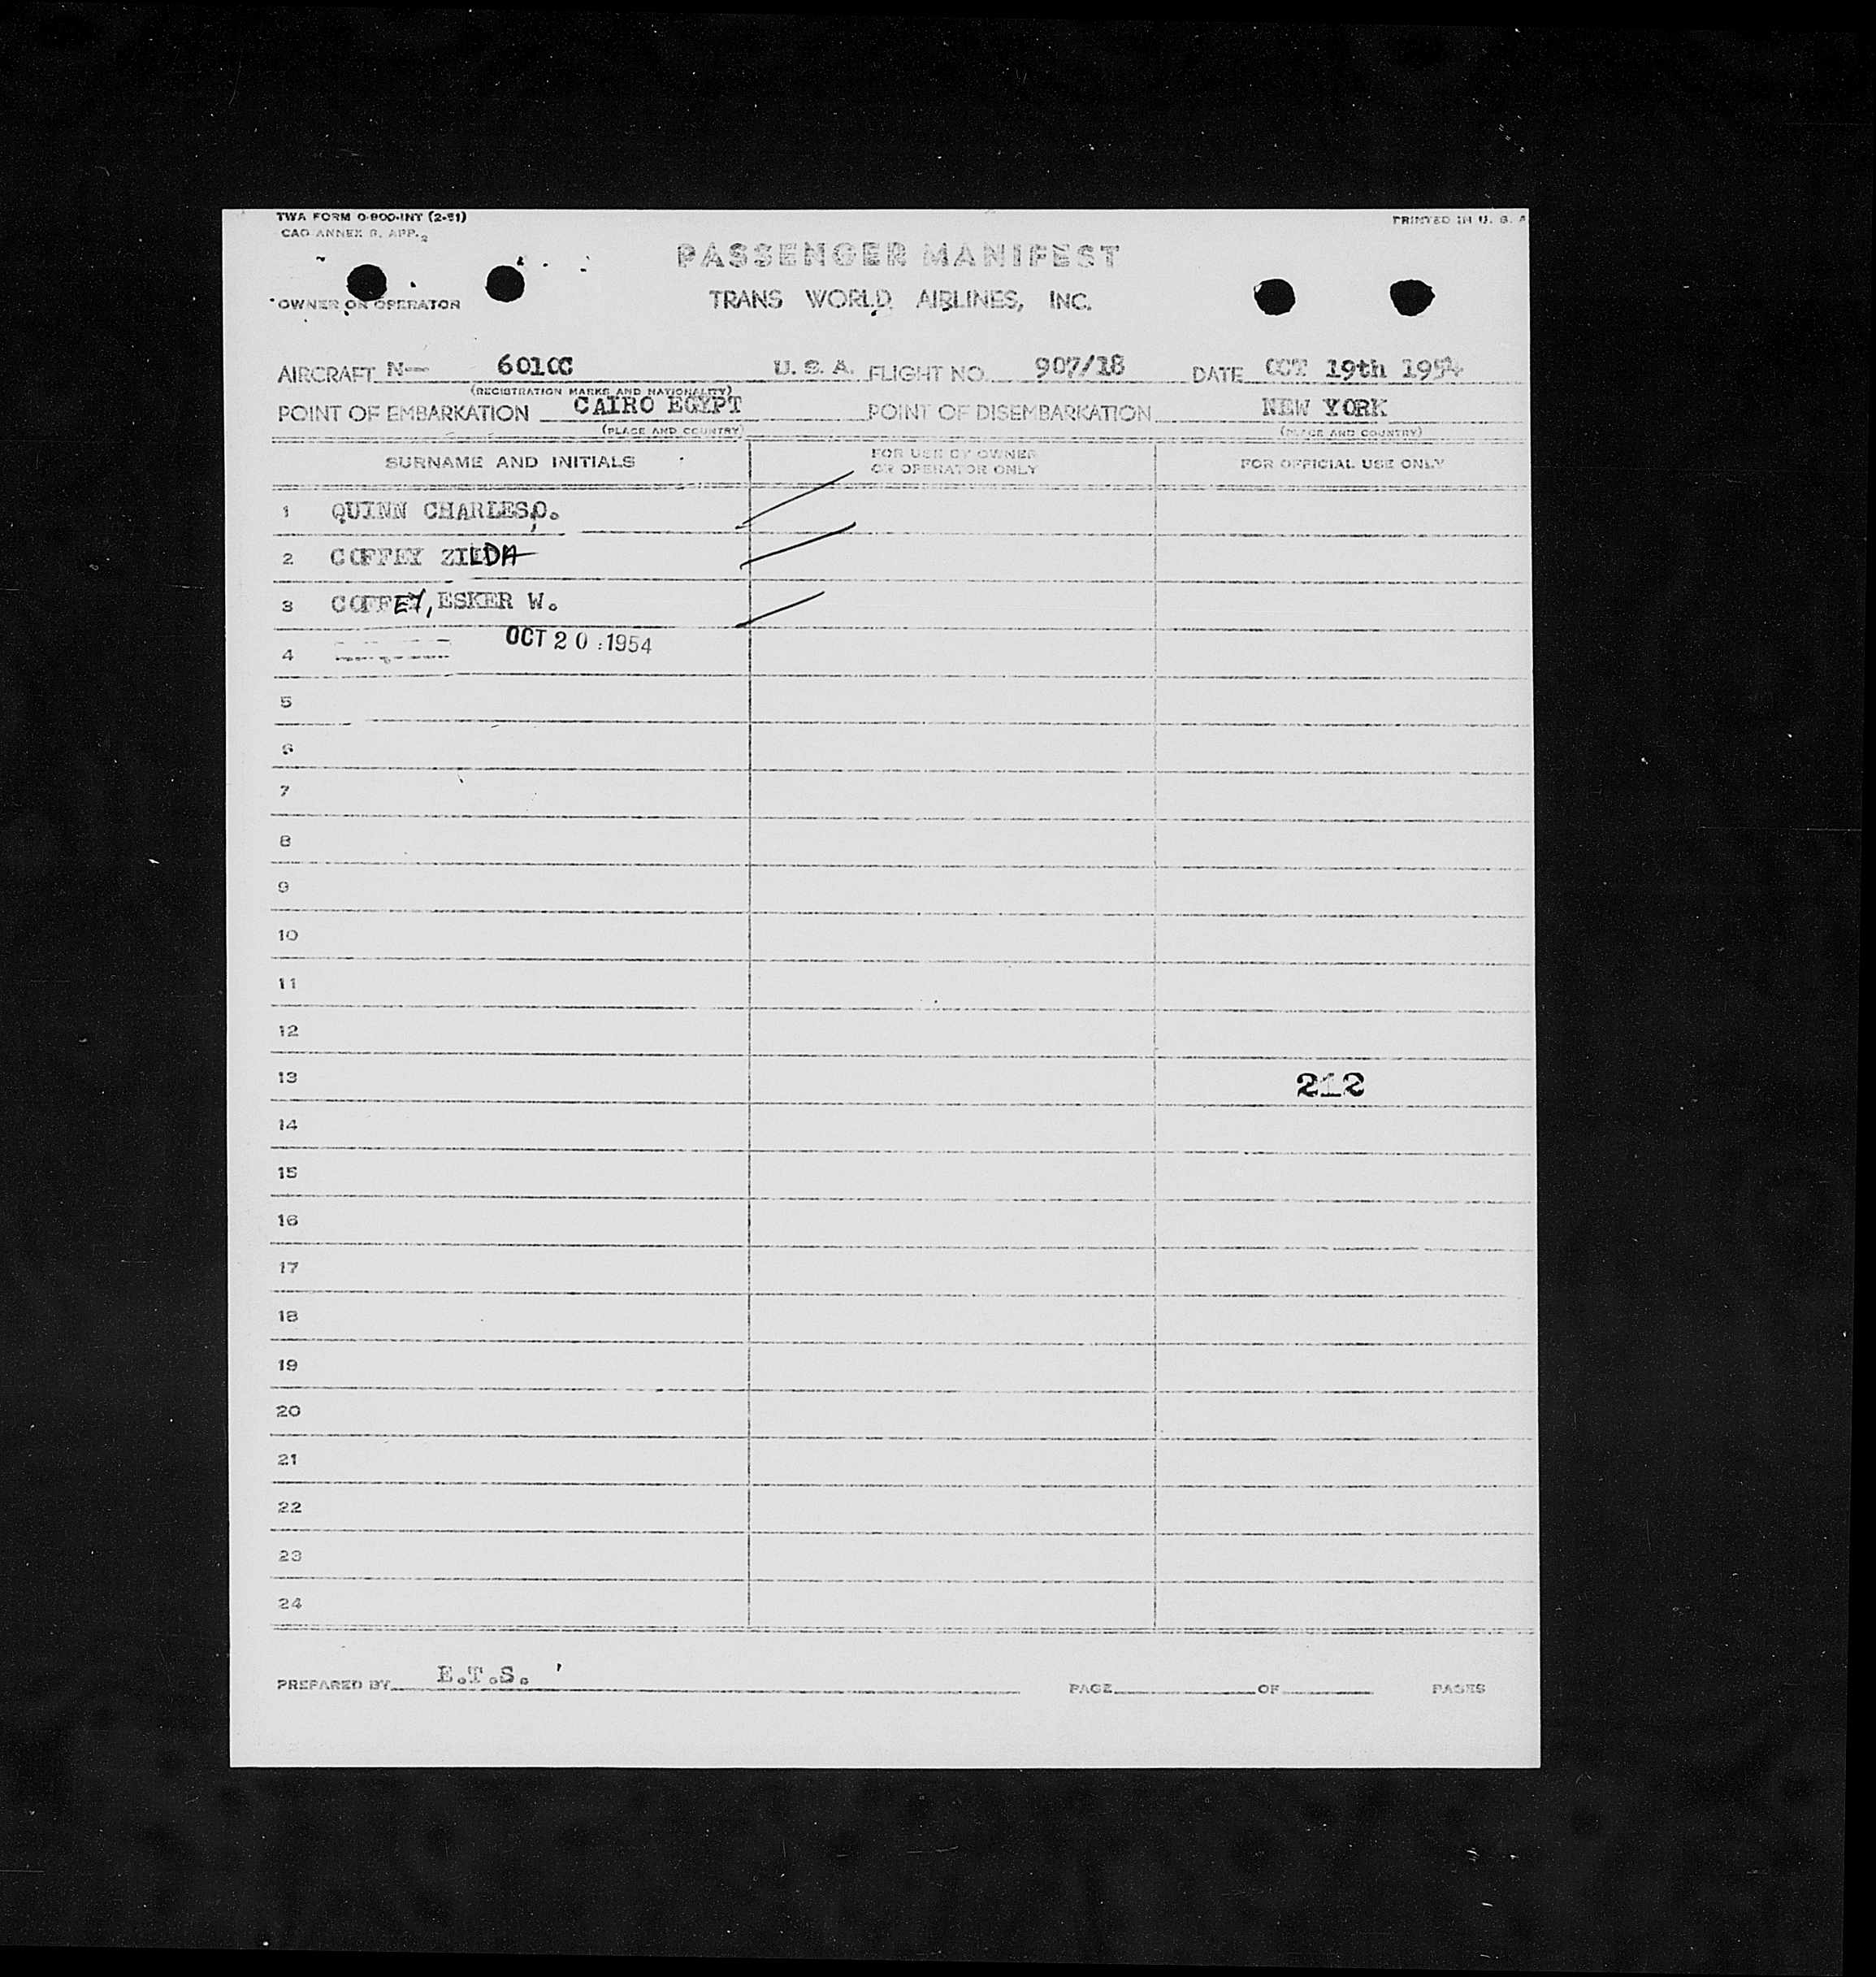 TWA FORM O-800-INT (2-51)
PRINTED IN U. S. A
CAO ANNEX 9, APP. 2
PASSENGER MANIFEST
OWNER OR OPERATOR
TRANS WORLD AIRLINES, INC.
AIRCRAFT N-- 6010C U. S. A. FLIGHT NO. 907/18 DATE OCT 19th 1954
(REGISTRATION MARKS AND NATIONALITY)
POINT OF EMBARKATION CAIRO EGYPT POINT OF DISEMBARKATION NEW YORK
(PLACE AND COUNTRY) (PLACE AND COUNTRY)
SURNAME AND INITIALS FOR USE BY OWNER OR OPERATOR ONLY FOR OFFICIAL USE ONLY
1 QUINN CHARLES, O.
2 COFFEY ZILDA
3 COFFEY, ESKER W.
4 OCT 20 1954
5
6
7
8
9
10
11
12
13 212
14
15
16
17
18
19
20
21
22
23
24
PREPARED BY E.T.S. PAGE OF PAGES